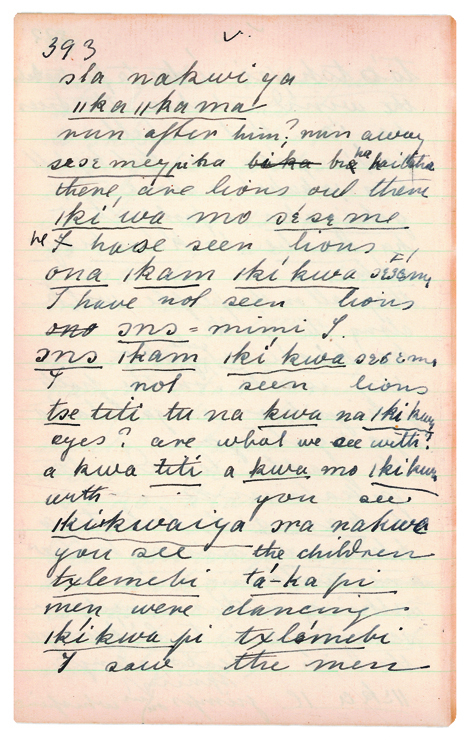 393 v.
sla nakwi ya
ııka ııkama
run after him? run away
sesɛ meypika
there are lions out there
ıkí wa mo sɛ́sɛ me
he I have seen lions
ona ıkam ıkí kwa sɛsɛme
I have not seen lions
ono ɔns = mimi I
ɔns ıkam ıkí kwa sɛsɛme
I not seen lions
tse titi tu na kwa na ıkí kwa
eyes? are what we see with?
a kwa titi a kwa mo ıkí kwa
with you see
ıkíokwaiya ɔra nakwe
you see the children
txlemebi tá-ka pi
men were dancing
ıkí kwa pi txlémebi
I saw the men